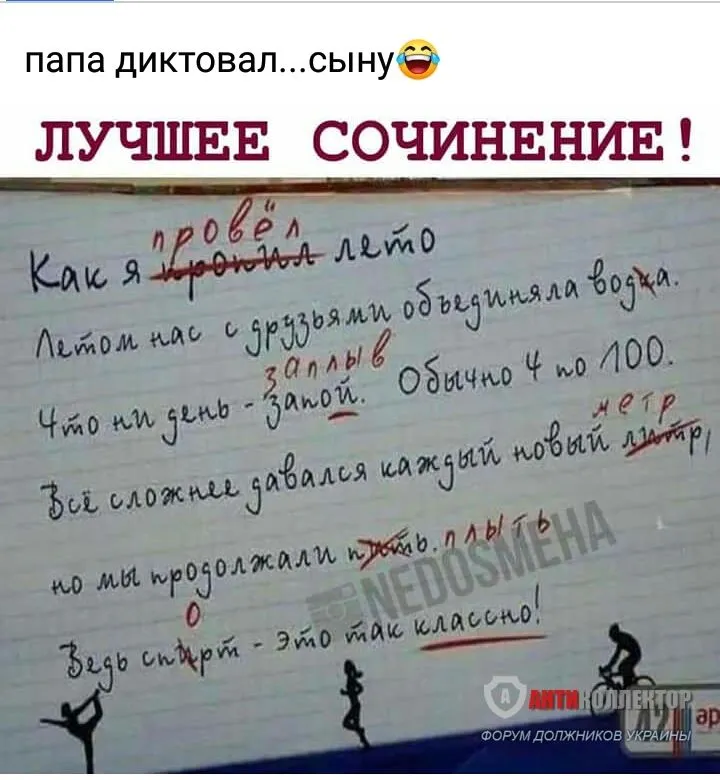 папа диктовал...сыну😂
ЛУЧШЕЕ СОЧИНЕНИЕ!
провёл
Как я пропил лето
Летом нас с друзьями объединяла водка.
заплыв
Что ни день - запой. Обычно 4 по 100.
метр
Всё сложнее давался каждый новый литр,
но мы продолжали пить. плыть
о
Ведь спирт - это так классно!
NEDOSMEHA
АНТИКОЛЛЕКТОР
ФОРУМ ДОЛЖНИКОВ УКРАИНЫ
42
ар